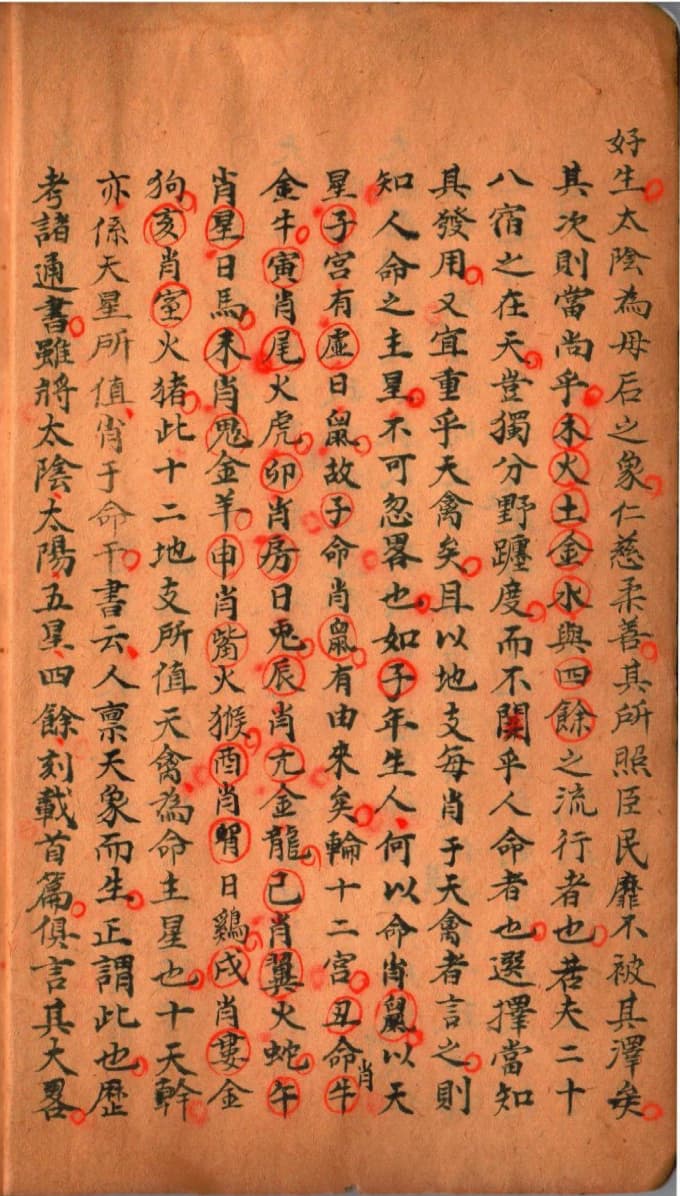 好生太陰為母后之象仁慈柔善其所照臣民靡不被其澤矣
其次則當尚乎木火土金水與四餘之流行者也若夫二十
八宿之在天豈獨分野躔度而不関乎人命者也選擇當知
其發用又宜重乎天禽矣且以地支每肖于天禽者言之則
知人命之主星不可忽畧也如子年生人何以命肖鼠以天
星子宮有虛日鼠故子命肖鼠有由來矣輪十二宮丑命肖牛
金牛寅肖尾火虎卯肖房日兎辰肖亢金龍巳肖翼火蛇午
肖星日馬未肖鬼金羊申肖觜火猴酉肖日鷄戌肖婁金
狗亥肖室火猪此十二地支所值天禽為命主星也十天幹
亦係天星所值肖于命干書云人禀天象而生正謂此也歷
考諸通書雖將太陰太陽五星四餘刻載首篇俱言其大畧